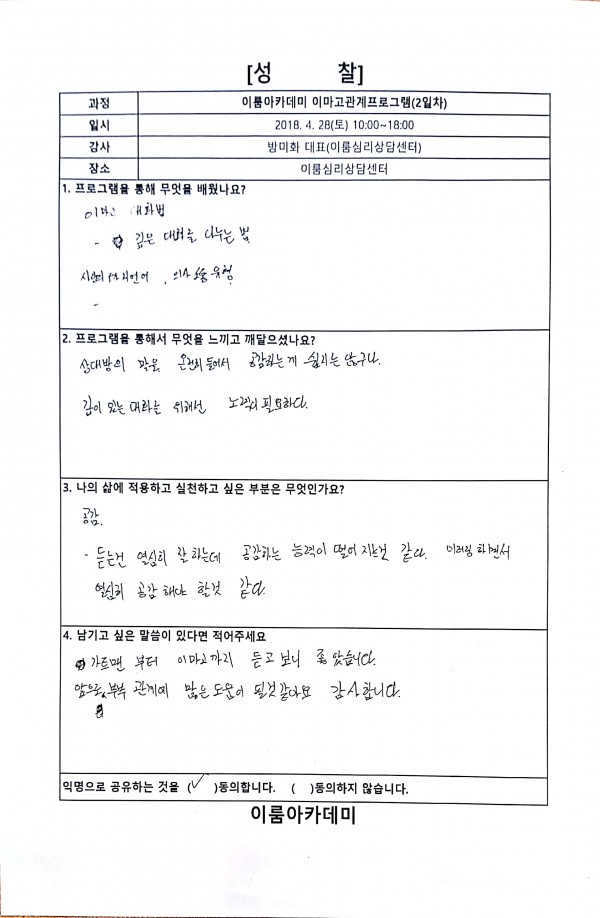 [성 찰]
과정 이룸아카데미 이마고관계프로그램(2일차)
일시 2018. 4. 28(토) 10:00~18:00
강사 방미화 대표(이룸심리상담센터)
장소 이룸심리상담센터
1. 프로그램을 통해 무엇을 배웠나요?
이마고 대화법
- 깊은 대화를 나누는 법
의사소통 유형
-
2. 프로그램을 통해서 무엇을 느끼고 깨달으셨나요?
상대방의 말을 온전히 들어서 공감하는게 쉽지는 않구나.
깊이 있는 대화는 위해선 노력이 필요하다.
3. 나의 삶에 적용하고 실천하고 싶은 부분은 무엇인가요?
공감.
- 듣는건 열심히 잘 하는데 공감하는 능력이 떨어지는것 같다. 미러링 하면서
열심히 공감 해야 할것 같다.
4. 남기고 싶은 말씀이 있다면 적어주세요
가트맨 부터 이마고까지 듣고 보니 좋았습니다.
앞으로 부부 관계에 많은 도움이 될것 같아요 감사합니다.
익명으로 공유하는 것을 (✓)동의합니다. ( )동의하지 않습니다.
이룸아카데미